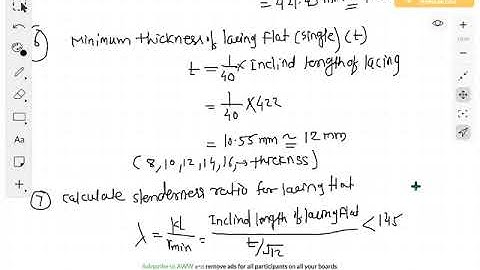 = 421.43 mm
⑥ Minimum thickness of lacing flat (single) (t)
t = 1/40 × Inclind length of lacing
= 1/40 × 422
= 10.55 mm ≃ 12 mm
(8, 10, 12, 14, 16, → thicknss)
⑦ calculate slenderness ratio for lacing flat
λ = KL/rmin = Inclind length of lacing flat / t/√12 < 145
Subscribe to AWW and remove ads for all participants on all your boards